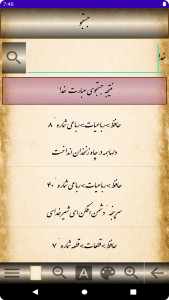 7:46
جستجو
خدا
نتیجه جستجوی عبارت "خدا"
حافظ > رباعیات > رباعی شماره ۸
دلها همه در چاه زنخدان انداخت
حافظ > رباعیات > رباعی شماره ۴۰
سرپنجه دشمن افکن ای شیر خدای
حافظ > قطعات > قطعه شماره ۷
A